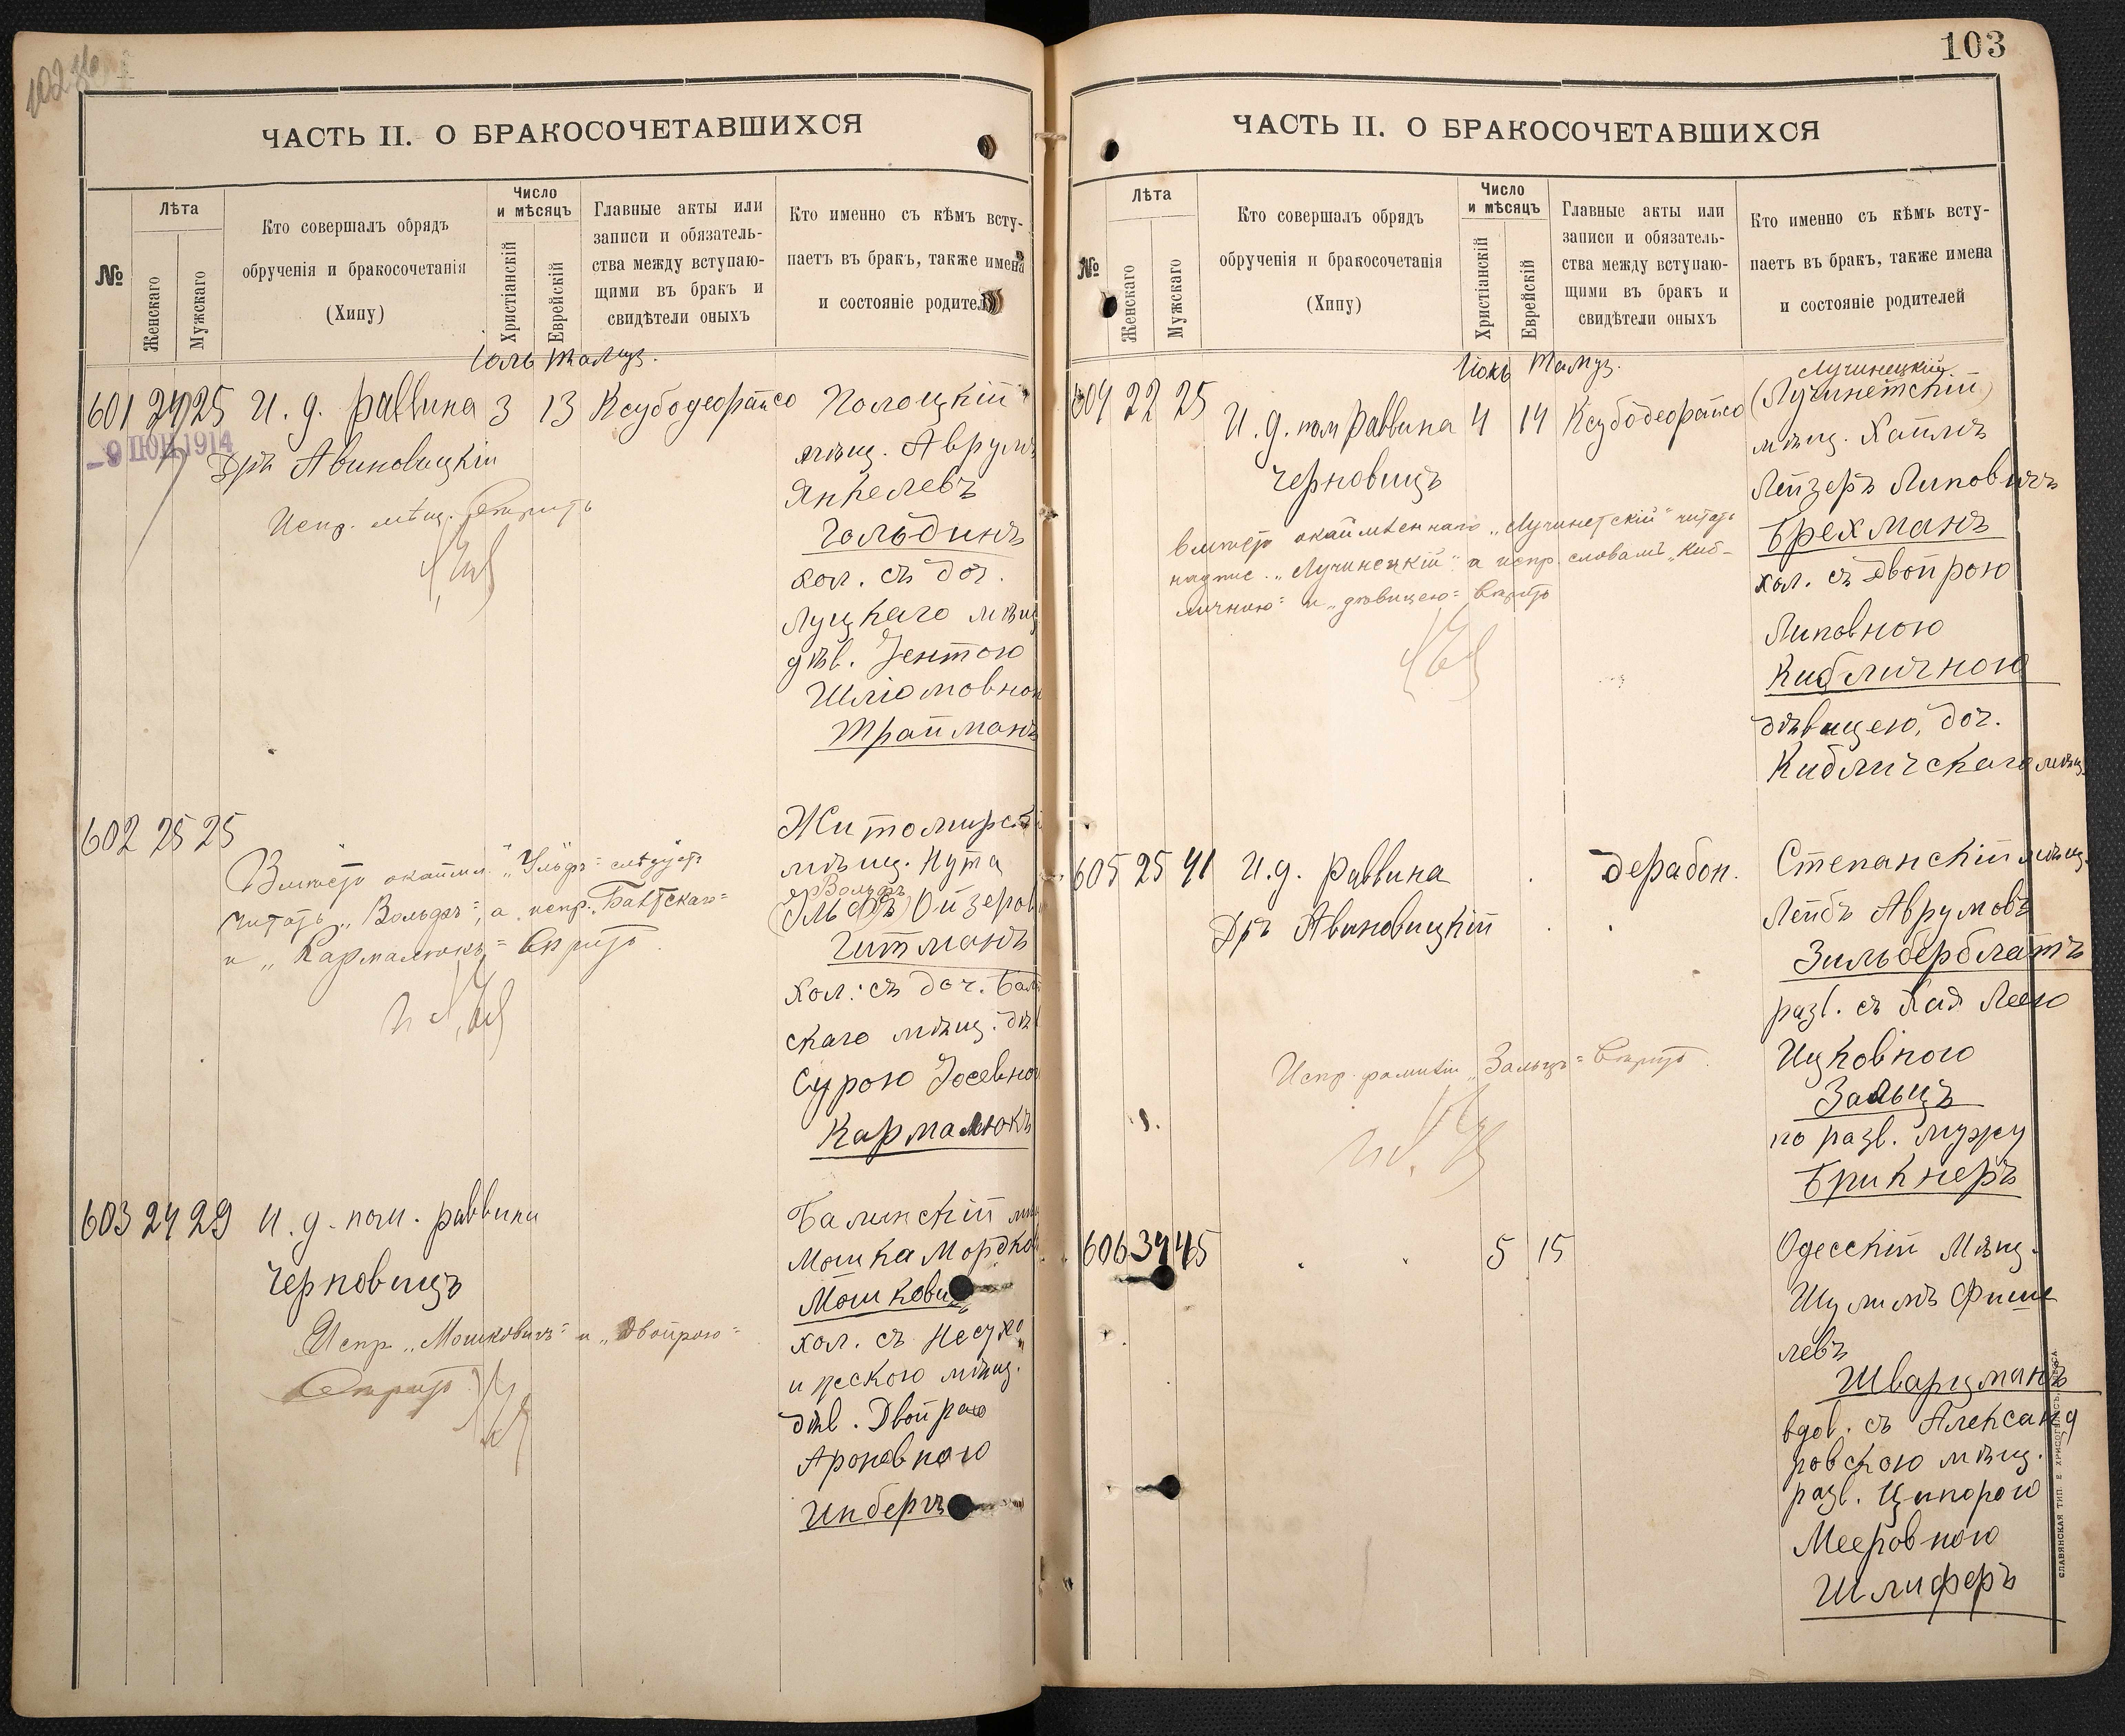 ЧАСТЬ II. О БРАКОСОЧЕТАВШИХСЯ
№
Лѣта
Женскаго
Мужскаго
Кто совершалъ обрядъ
обрученія и бракосочетанія
(Хипу)
Число
и мѣсяцъ
Христіанскій
Еврейскій
Главные акты или
записи и обязатель-
ства между вступаю-
щими въ бракъ и
свидѣтели оныхъ
Кто именно съ кѣмъ всту-
паетъ въ бракъ, также имена
и состояніе родителей
601 24 25 И. д. раввина 3 13
9 1914
Дръ Авиновицкій
Испр. мѣщ.
Полоцкій
мѣщ. Аврумъ
Янкелевъ
Гольдинъ
хол. съ доч.
Луцкаго мѣщ
дѣв. Іентою
Шліомовною
Трайманъ
602 25 25
Вмѣсто окаймл. слѣдуетъ
читать „Вольфъ“, а испр.
и „Кармалюкъ“ вѣрить
Житомирск
мѣщ. Нута
Вольфъ
Ойзеров
Гитманъ
хол. съ доч.
скаго мѣщ. дѣв
Сурою Іосевною
Кармалюкъ
603 24 29 И. д. пом. раввина
Черновицъ
Испр. „Мошковичъ“ и „Двойрою“
Балинскій
Мошка Мордков
Мошкови
хол. съ
мѣщ.
дѣв. Двойрою
Ароновною
Инберъ
103
ЧАСТЬ II. О БРАКОСОЧЕТАВШИХСЯ
№
Лѣта
Женскаго
Мужскаго
Кто совершалъ обрядъ
обрученія и бракосочетанія
(Хипу)
Число
и мѣсяцъ
Христіанскій
Еврейскій
Главные акты или
записи и обязатель-
ства между вступаю-
щими въ бракъ и
свидѣтели оныхъ
Кто именно съ кѣмъ всту-
паетъ въ бракъ, также имена
и состояніе родителей
Тамуз.
604 22 25 И. д. пом раввина 4 14
Черновицъ
вмѣсто окаймленнаго „Лучинетскій“ читать
надпис. „Лучинецкій“ а испр. словамъ „Киб-
личною“ и „дѣвицею“ вѣрить
Лучинецкій
(Лучинетскій)
мѣщ. Хаимъ
Лейзеръ Липовичъ
Брехманъ
хол. съ Двойрою
Липовною
Кибличною
дѣвицею, доч.
Кибличскаго мѣщ.
605 25 41 И. д. раввина дерабон.
Дръ Авиновицкій
Испр. фамиліи „Зальцъ“ вѣрить
Степанскій мѣщ.
Лейбъ Аврумовъ
Зильберблатъ
разв. съ Хая Леею
Ицковною
Зальцъ
по разв. мужу
Брикнеръ
606 34 45 5 15
Одесскій Мѣщ.
Шулимъ Фише
левъ
Шварцманъ
вдов. съ Александ
ровскою мѣщ.
разв. Ципорою
Мееровною
Шлиферъ
СЛАВЯНСКАЯ ТИП. Е. ХРИСОГЕЛОСЪ, ОДЕССА